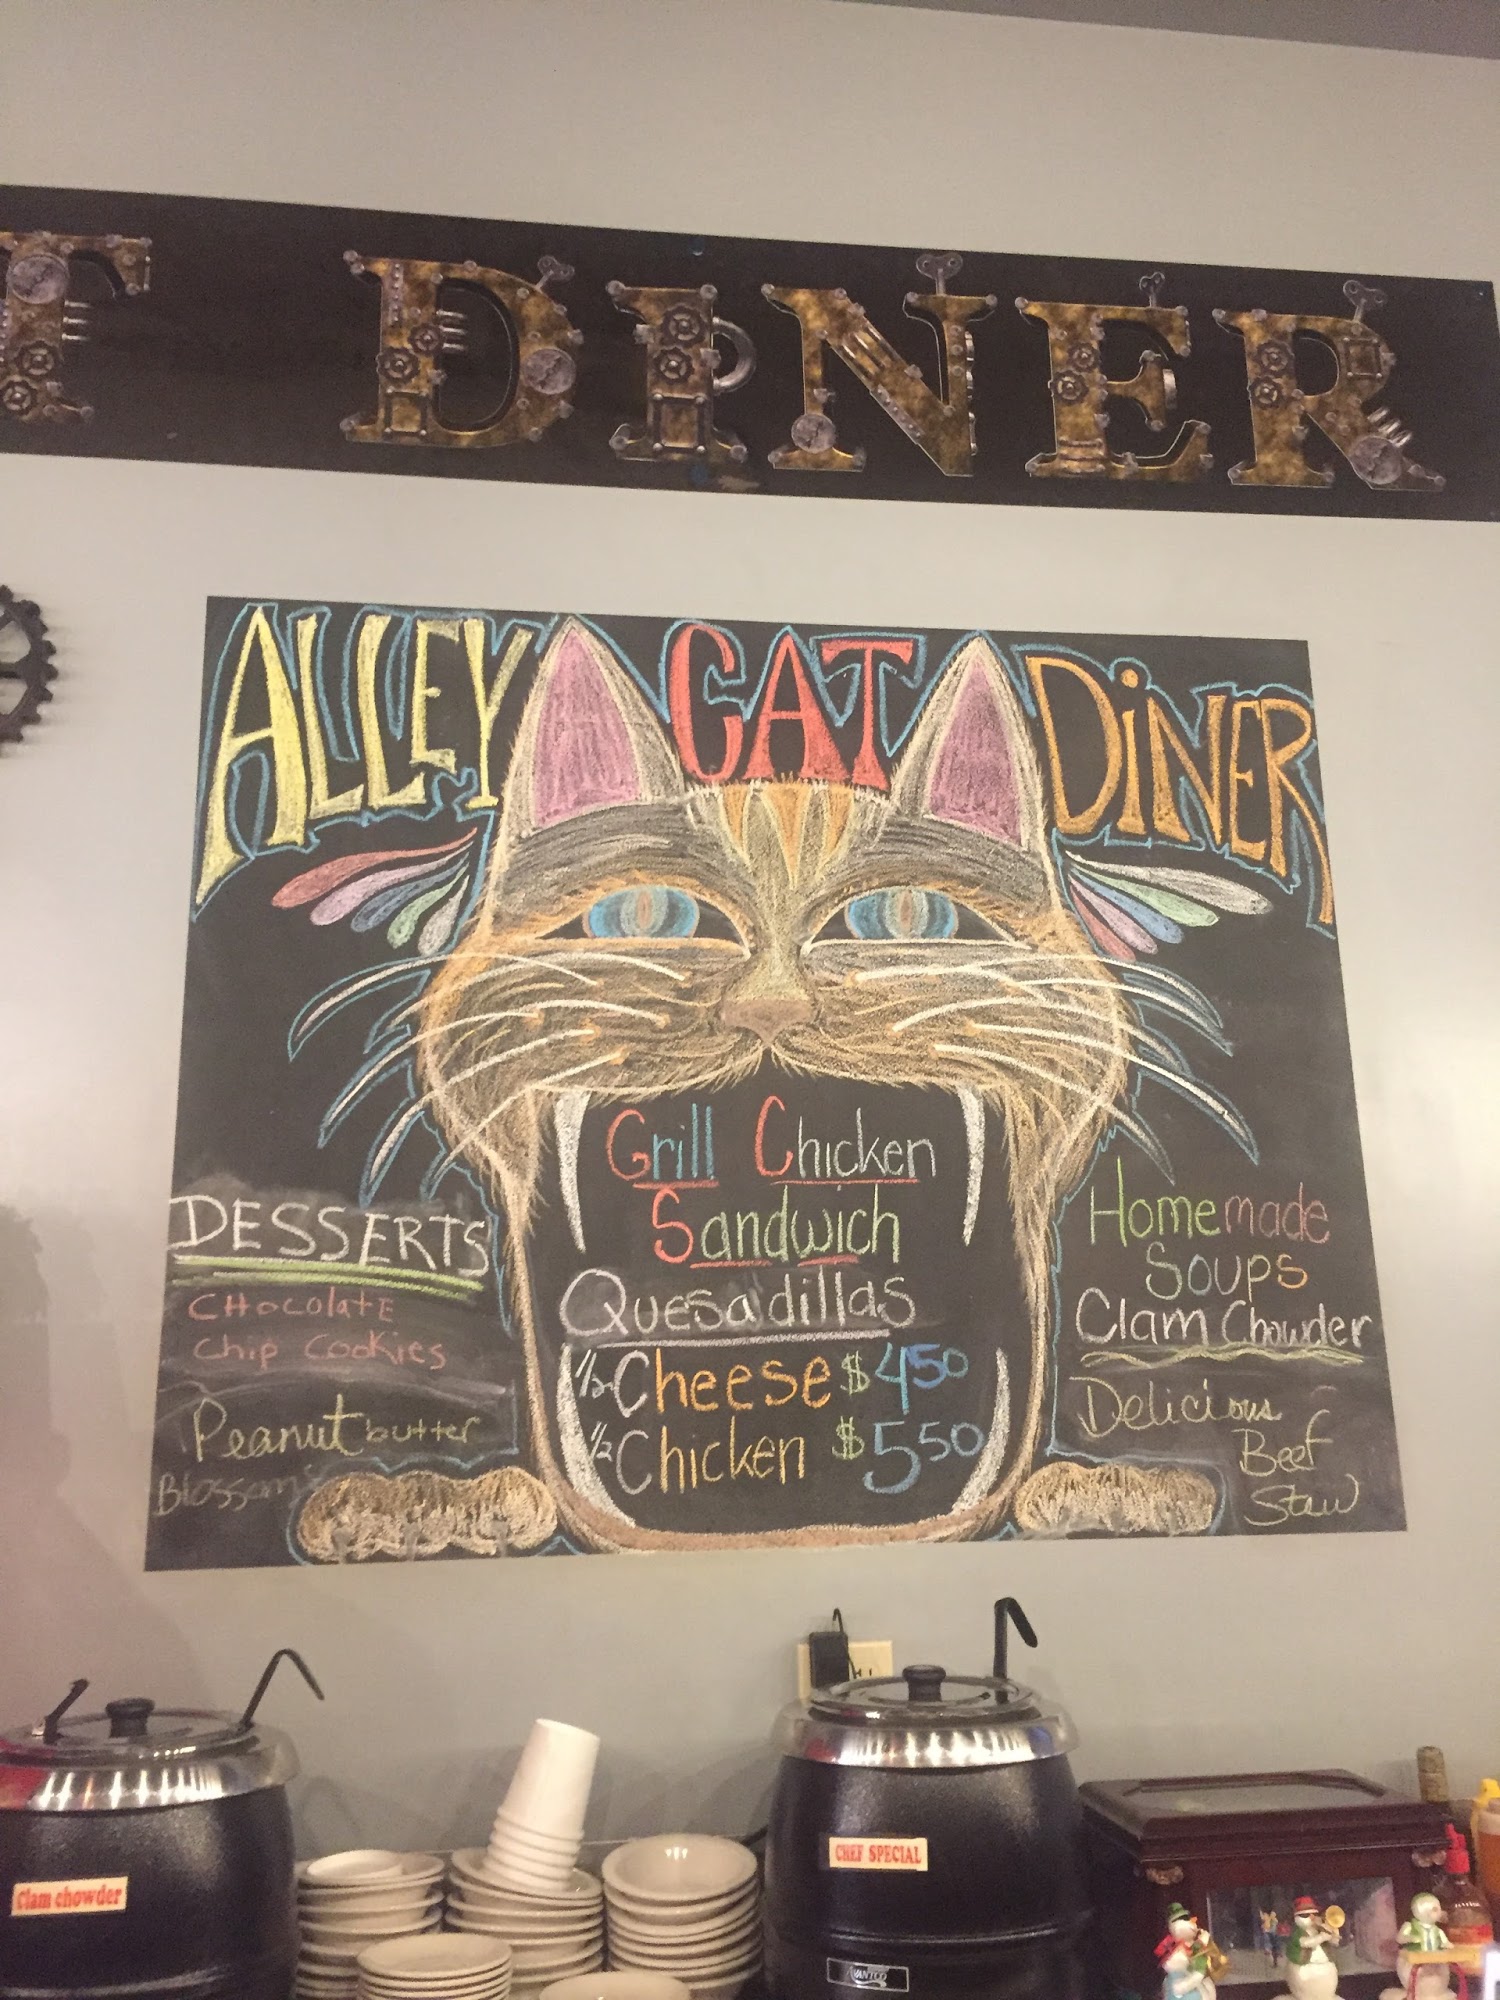 T DiNER
ALLEY CAT DiNER
Grill Chicken
Sandwich
Quesadillas
1/2 Cheese $4.50
1/2 Chicken $5.50
DESSERTS
CHOCOLATE
CHip COOKiES
Peanut butter
Blossoms
Homemade
Soups
Clam Chowder
Delicious
Beef
Stew
Clam chowder
CHEF SPECIAL
AVANTCO